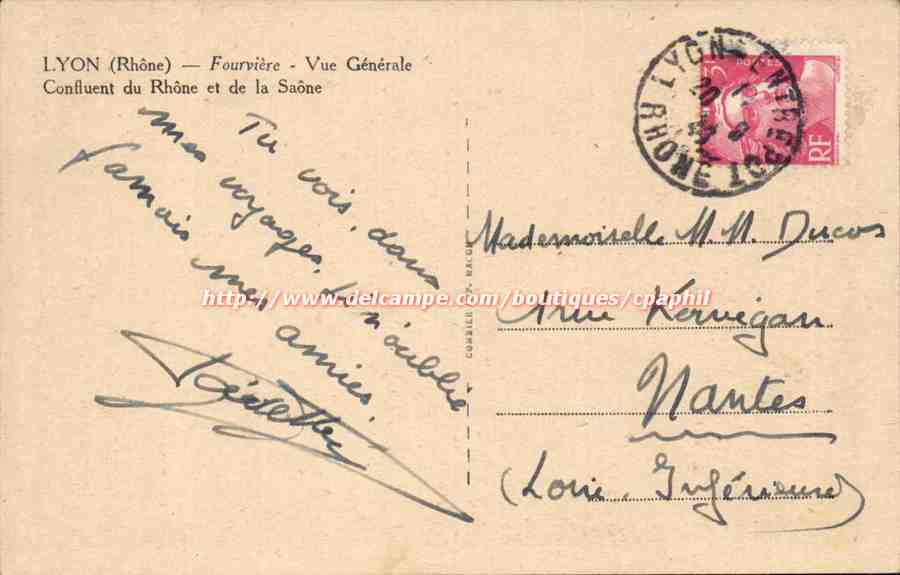 LYON (Rhône) — Fourvière - Vue Générale
Confluent du Rhône et de la Saône
Tu vois, dans
mes voyages, je n'oublie
jamais mes amies.
LYON ENTREPOT RHONE
20
POSTES
RF
COMBIER IMP. MACON
Mademoiselle M. M. Ducos
Kervégan
Nantes
(Loire Inférieure)
http://www.delcampe.com/boutiques/cpaphil